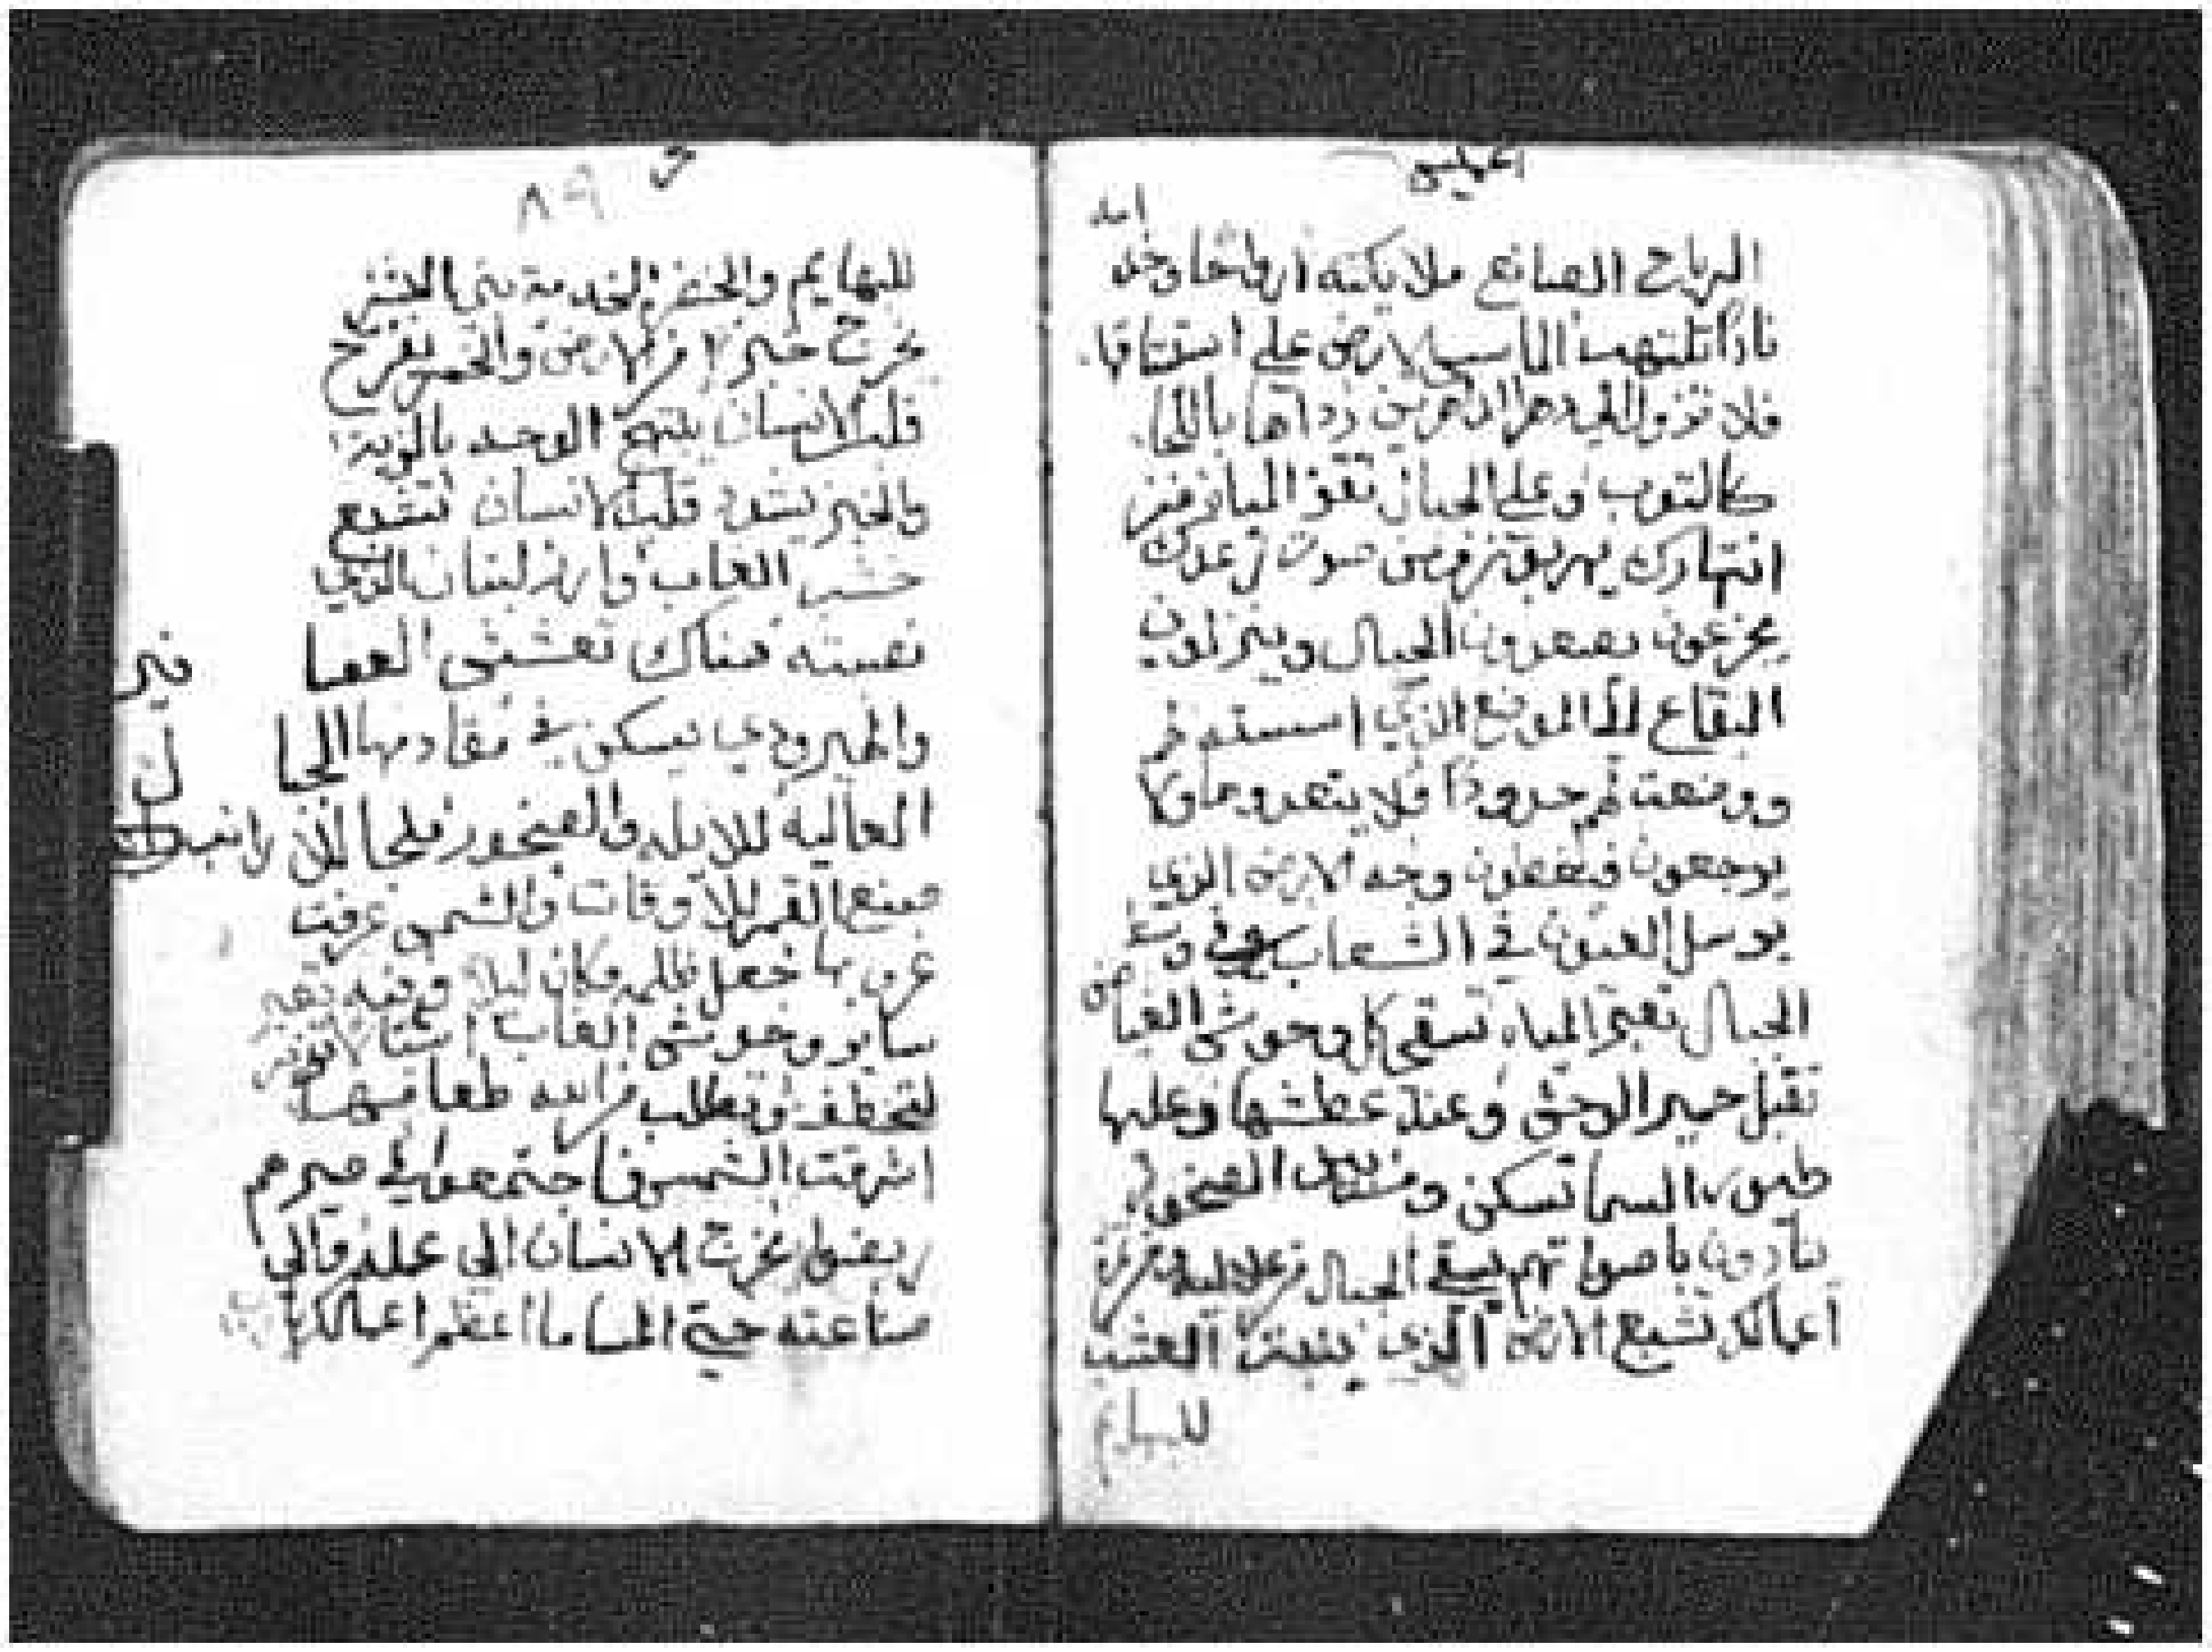 امه
الرياح الصانع ملايكته ارواحا وخد
نارا تلتهب الماسس الارض على استقاقها
فلا تزول الى دهر الداهرين رداها باللجا
كالتوب وعلى الجبال تقف المياه فمن
انتهارك يهربون ومن صوت رعدك
يجزعون يصعدون الجبال وينزلون
البقاع الى الموضع الذي اسسته لهم
ووضعت لهم حدودا فلا يتعدوها ولا
يرجعون فيغطون وجه الارض الذي
يرسل العيون في الشعاب وفي وسط
الجبال تعبر المياه تسقي كل وحوش الغياض
تقبل حمير الوحش وعند عطشها وعليها
طيور السما تسكن ومن بين الصخور
ينادون باصواتهم يسقي الجبال من علاليه من ثمرة
اعمالك تشبع الارض الذي ينبت العشب
للبهايم
٨٩
للبهايم والخضر لخدمة بني البشر
يخرج خبزا من الارض والخمر تفرح
قلب الانسان يبتهج الوجه بالزيت
والخبز يشدد قلب الانسان تشبع
خشب الغاب وارز لبنان الذي
نصبته هناك تعشش العصافير
والهيرودي يسكن في مقادمها الجبال
العالية للايله والصخور ملجا للارانب
صنع القمر للاوقات والشمس عرفت
غروبها جعل ظلمه وكان ليلا وفيه تعبر
ساير وحوش الغاب اشبال تزئر
لتخطف وتطلب من الله طعامها
اشرقت الشمس فاجتمعوا وفي صيرهم
ربضوا يخرج الانسان الى عمله والى
صناعته حتى المسا ما اعظم اعمالك